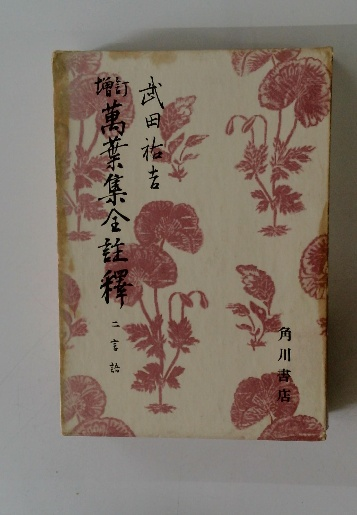 武田祐吉
増訂
萬葉集全註釋
二 言語
角川書店